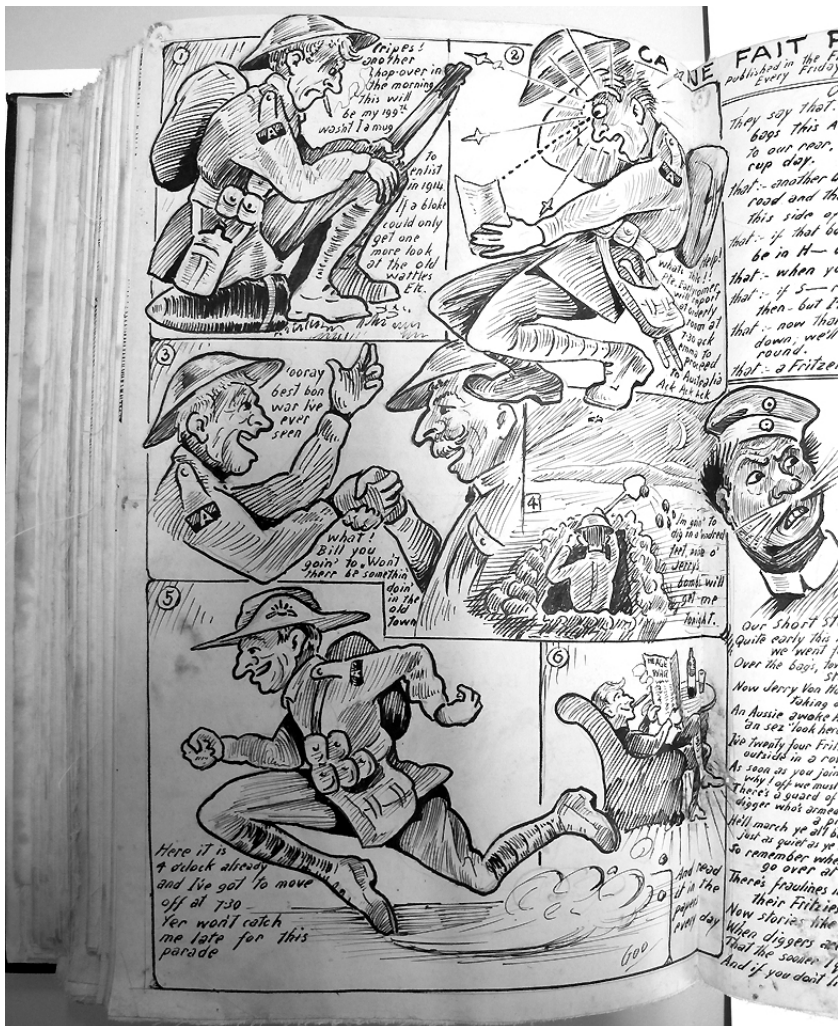 1
Cripes!
another
hop-over in
the morning
this will
be my 199th
wasn't I a mug
to
enlist
in 1914
If a bloke
could only
get one
more look
at the old
wattles
Etc.
A
2
Help!
whats this!!
will report
at orderly
room at
7.30 ack
emma to
proceed
to Australia
Ack Ack Ack
3
'ooray
best bon
war I've
ever
seen
A
what!
Bill you
goin' to. Won't
there be somethin
doin'
in the
old
town
4
I'm goin' to
dig in
feet
Jerry's
bombs will
get me
tonight.
5
Here it is
4 o'clock already
and I've got to move
off at 730
Yer won't catch
me late for this
parade
6
WAR
And read
it in the
papers
every day
GOO
CA NE FAIT
Published in the
Every Friday
They say that
bags this
to our rear.
cup day.
that:- another
road and
this side
that:- if that
be in H—
that:- when
that:- if S—
then - but
that:- now
down, we'll
round.
that:- a Fritzer
Our Short
Quite early this
we went
Over the bags,
Now Jerry Von
taking
An Aussie awoke
an sez "look here
I've twenty four
outside in a
As soon as you
why! off we must
There's a guard of
digger who's armed
He'll march ye all
just as quiet as ye
So remember
go over
There's fraulines
their
Now stories like
When diggers
That the sooner
And if you dont